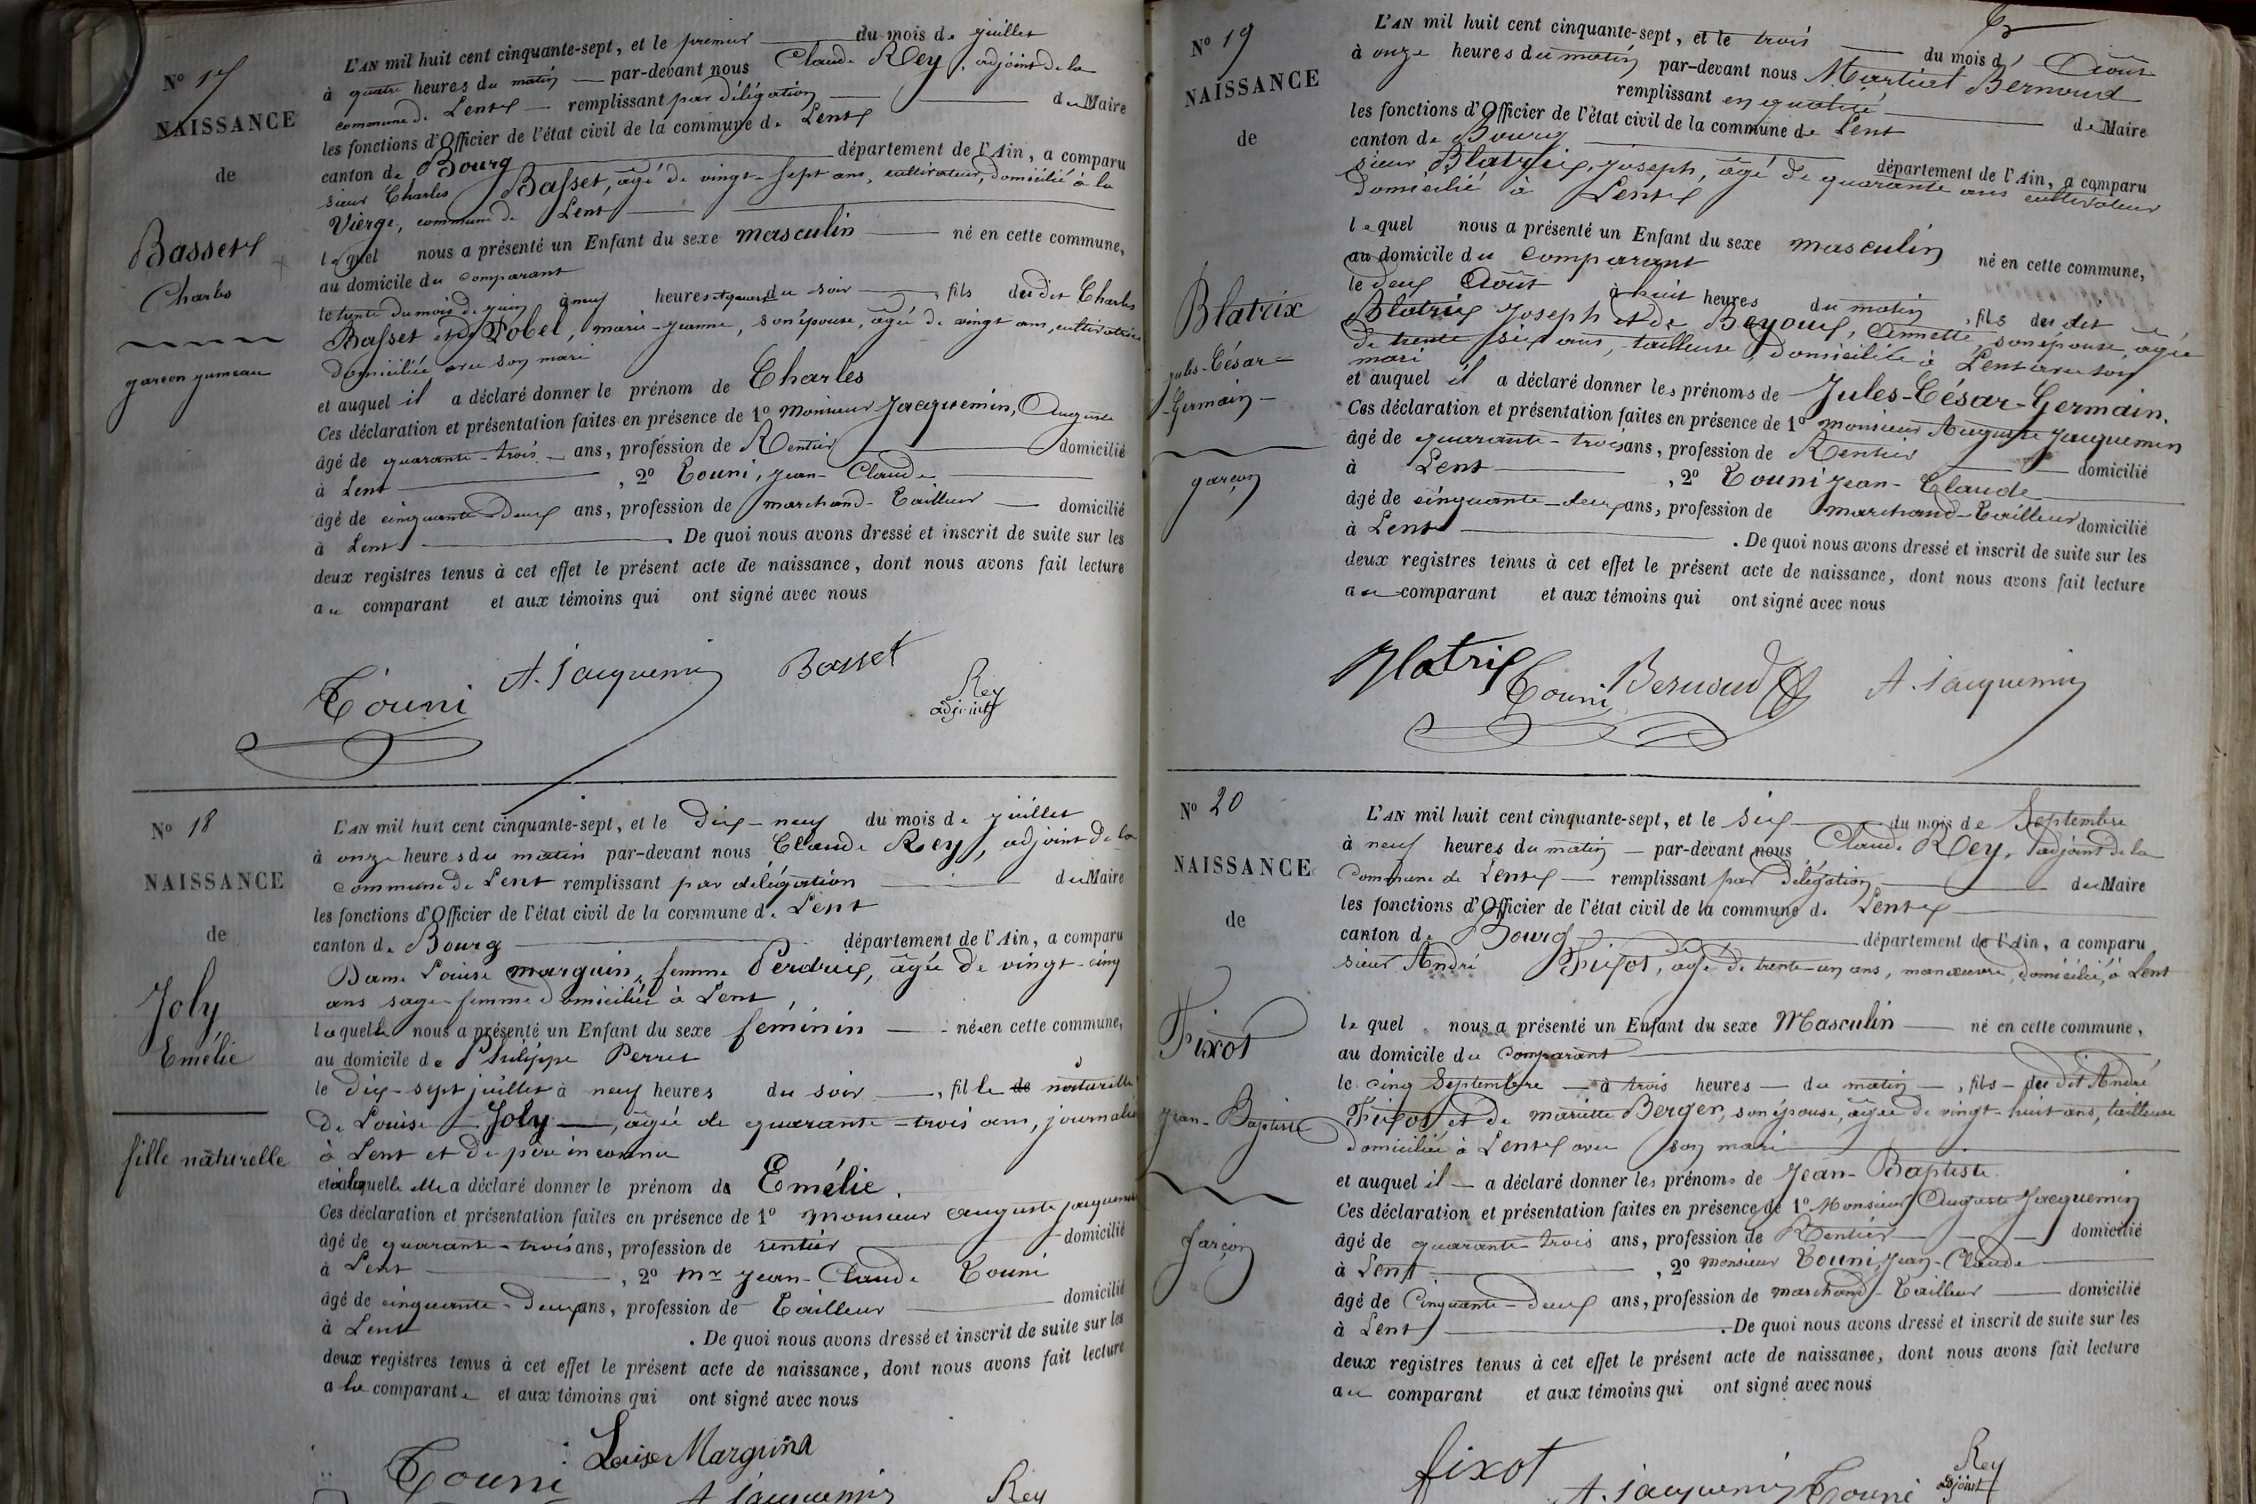 N° 17
NAISSANCE
de
Basset
Charles
garçon jumeau
L'AN mil huit cent cinquante-sept, et le premier du mois de juillet
à quatre heures du matin par-devant nous Claude Rey, adjoint de la
commune de Lent remplissant par délégation du Maire
les fonctions d'Officier de l'état civil de la commune de Lent
canton de Bourg département de l'Ain, a comparu
sieur Charles Basset, âgé de vingt-sept ans, cultivateur, domicilié à la
Vierge, commune de Lent
lequel nous a présenté un Enfant du sexe masculin né en cette commune,
au domicile du comparant
le trente du mois de juin à neuf heures et quart du soir, fils du dit Charles
Basset et de Fobel, marie-jeanne, son épouse, âgée de vingt ans, cultivatrice
domiciliée avec son mari
et auquel il a déclaré donner le prénom de Charles
Ces déclaration et présentation faites en présence de 1° Monsieur Jacquemin, Auguste
âgé de quarante-trois ans, profession de Rentier domicilié
à Lent, 2° Touni, jean-Claude
âgé de cinquante-deux ans, profession de marchand-Tailleur domicilié
à Lent. De quoi nous avons dressé et inscrit de suite sur les
deux registres tenus à cet effet le présent acte de naissance, dont nous avons fait lecture
au comparant et aux témoins qui ont signé avec nous
Touni A. Jacquemin Basset Rey
adjoint
N° 18
NAISSANCE
de
Joly
Emélie
fille naturelle
L'AN mil huit cent cinquante-sept, et le dix-neuf du mois de juillet
à onze heures du matin par-devant nous Claude Rey, adjoint de la
commune de Lent remplissant par délégation du Maire
les fonctions d'Officier de l'état civil de la commune de Lent
canton de Bourg département de l'Ain, a comparu
Dame Louise marguin, femme Perdrix, âgée de vingt-cinq
ans sage-femme domiciliée à Lent,
laquelle nous a présenté un Enfant du sexe féminin née en cette commune,
au domicile de Philippe Perret
le dix-sept juillet à neuf heures du soir, fille de naturelle
de Louise Joly, âgée de quarante-trois ans, journalière
à Lent et de père inconnu
et à laquelle elle a déclaré donner le prénom de Emélie.
Ces déclaration et présentation faites en présence de 1° monsieur auguste jacquemin
âgé de quarante-trois ans, profession de rentier domicilié
à Lent, 2° Mr jean-Claude Touni
âgé de cinquante-deux ans, profession de Tailleur domicilié
à Lent. De quoi nous avons dressé et inscrit de suite sur les
deux registres tenus à cet effet le présent acte de naissance, dont nous avons fait lecture
a la comparante et aux témoins qui ont signé avec nous
Touni Louise Marguin
A. Jacquemin Rey
N° 19
NAISSANCE
de
Blatrix
jules-César-
Germain-
garçon
L'AN mil huit cent cinquante-sept, et le trois du mois d' Août
à onze heures du matin par-devant nous Martiel Bernoud
remplissant en qualité de Maire
les fonctions d'Officier de l'état civil de la commune de Lent
canton de Bourg département de l'Ain, a comparu
sieur Blatrix, joseph, âgé de quarante ans cultivateur
domicilié à Lent
lequel nous a présenté un Enfant du sexe masculin né en cette commune,
au domicile du comparant
le deux Août à huit heures du matin, fils du dit
Blatrix Joseph et de Beyoux, Annette, son épouse, âgée
de trente six ans, tailleuse, domiciliée à Lent avec son
mari
et auquel il a déclaré donner les prénoms de Jules-César-Germain.
Ces déclaration et présentation faites en présence de 1° monsieur Auguste Jacquemin
âgé de quarante-trois ans, profession de Rentier domicilié
à Lent, 2° Touni jean-Claude
âgé de cinquante-deux ans, profession de marchand-Tailleur domicilié
à Lent. De quoi nous avons dressé et inscrit de suite sur les
deux registres tenus à cet effet le présent acte de naissance, dont nous avons fait lecture
au comparant et aux témoins qui ont signé avec nous
Blatrix Touni Bernoud A. Jacquemin
N° 20
NAISSANCE
de
Fixot
jean-Baptiste
Garçon
L'AN mil huit cent cinquante-sept, et le six du mois de Septembre
à neuf heures du matin par-devant nous Claude Rey, adjoint de la
Commune de Lent remplissant par délégation du Maire
les fonctions d'Officier de l'état civil de la commune de Lent
canton de Bourg département de l'Ain, a comparu
sieur André Fixot, âgé de trente-un ans, manœuvre, domicilié, à Lent
lequel nous a présenté un Enfant du sexe Masculin né en cette commune,
au domicile du Comparant
le cinq Septembre à trois heures du matin, fils du dit André
Fixot, et de mariette Berger, son épouse, âgée de vingt-huit ans, tailleuse
domiciliée à Lent avec son mari
et auquel il a déclaré donner les prénoms de Jean-Baptiste.
Ces déclaration et présentation faites en présence de 1° Monsieur Auguste Jacquemin
âgé de quarante-trois ans, profession de Rentier domicilié
à Lent, 2° monsieur Touni, jean-Claude
âgé de Cinquante-deux ans, profession de marchand-Tailleur domicilié
à Lent. De quoi nous avons dressé et inscrit de suite sur les
deux registres tenus à cet effet le présent acte de naissance, dont nous avons fait lecture
au comparant et aux témoins qui ont signé avec nous
fixot A. Jacquemin Touni Rey
adjoint